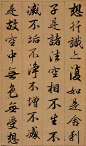 想行識亦復如是舍利
子是諸法空相不生不
滅不垢不淨不增不減
是故空中無色無受想